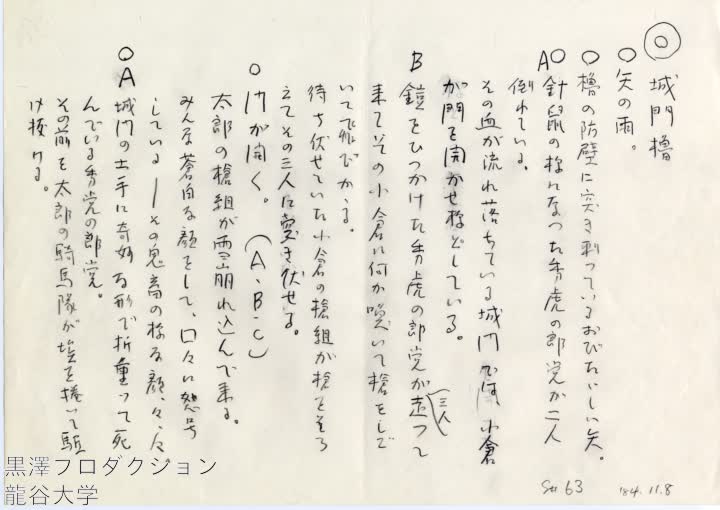 ◎ 城門櫓
○矢の雨。
○櫓の防壁に突き刺っているおびただしい矢。
A○針鼠の様になった秀虎の郎党が二人
倒れている。
その血が流れ落ちている城門では、小倉
が門を開かせ様としている。
B 鎧をひっつけた秀虎の郎党が(三人)走って
来ていその小倉に何か喚いて槍をしご
いて飛びかゝる。
待ち伏せていた小倉の槍組が槍をそろ
えてその三人を突き伏せる。
○門が開く。(A、B、C)
太郎の槍組が雪崩れ込んで来る。
みんな蒼白な顔をして、口々に怒号
している ― その鬼畜の様な顔、々、々。
○A 城門の土手に奇妙な形で折重って死
んでいる秀虎の郎党。
その前を太郎の騎馬隊が埃を捲いて駈
け抜ける。
S# 63
'84. 11. 8
黒澤プロダクション
龍谷大学